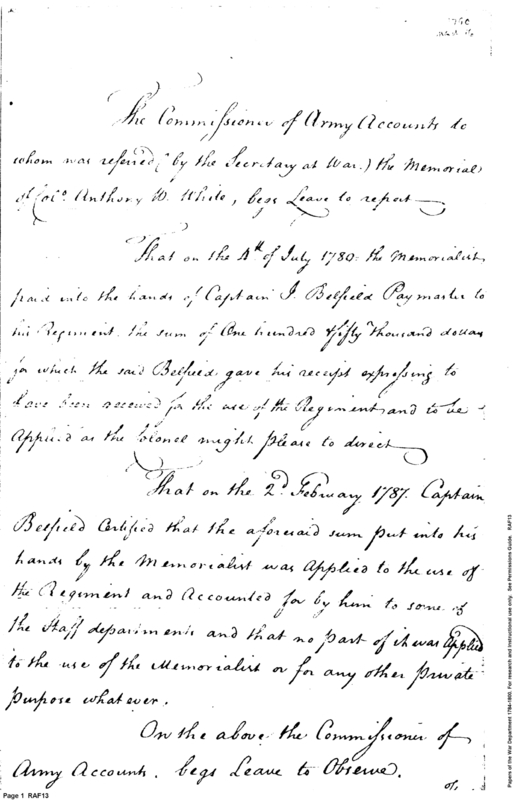 1790
The Commissioner of Army Accounts to
whom was referred (by the Secretary at War.) the Memorial
of Colo. Anthony W. White, begs Leave to report
That on the 4th of July 1780. the Memorialist
paid into the hands of Captain J. Belfield Paymaster to
his Regiment. the sum of One hundred & fifty Thousand dollars
for which the said Belfield gave his receipt expressing to
have been received for the use of the Regiment and to be
Applied as the Colonel might please to direct
That on the 2d. February 1787. Captain
Belfield Certified that the aforesaid sum put into his
hands by the Memorialist was Applied to the use of
the Regiment and Accounted for by him to some of
the Staff departments and that no part of it was Applied
to the use of the Memorialist or for any other private
Purpose whatever.
On the above the Commissioner of
Army Accounts. begs Leave to Observe.
Page 1 RAF13
Papers of the War Department 1784-1800. For research and instructional use only. See Permissions Guide. RAF13